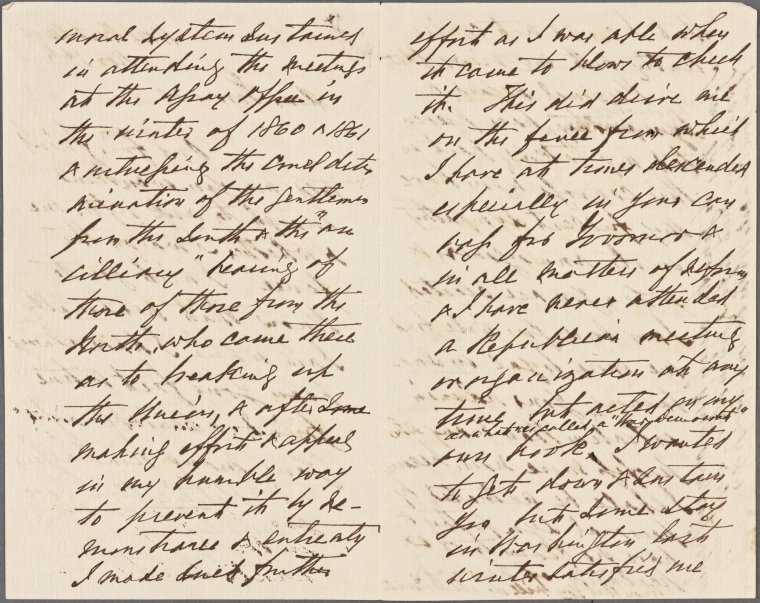 moral system sustained
in attending the meetings
at the Assay Office in
the winter of 1860 & 1861
& witnessing the cruel deter
mination of the gentlemen
from the South & the "au
cilliary" bearing of
those of those from the
North, who came there
as to breaking up
the Union, & after some
making effort & appeals
in my humble way
to prevent it by re-
monstrance & entreaty
I made such further
effort as I was able when
it came to blows to check
it. This did drive me
on the fence from which
I have at times descended
especially in your can
vass for Governor &
in all matters of reform
& I have never attended
a Republican meeting
or organization at any
time but acted on my
as what we called a "War Democrat"
own hook. I wanted
to get down & sustain
you but some stay
in Washington last
winter satisfied me